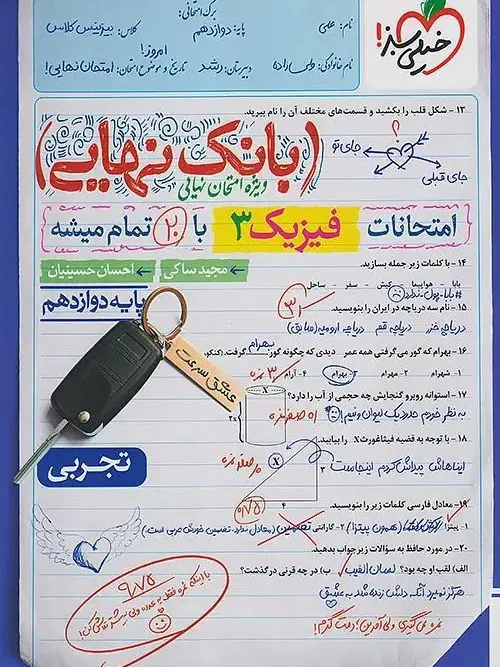 برگ امتحانی:
نام: علی
پایه: دوازدهم
کلاس: بیزینس کلاس
امروز!
نام خانوادگی:
دبیرستان: رشد
تاریخ و موضوع امتحان: امتحان نهایی!
خیلی سبز!
۱۳ - شکل قلب را بکشید و قسمت‌های مختلف آن را نام ببرید.
؟
جای تو
جای قبلی
(بانک نهایی)
ویژه امتحان نهایی
امتحانات فیزیک ۳ با ۲۰ تمام میشه
مجید ساکی
احسان حسینیان
پایه دوازدهم
۱۴ - با کلمات زیر جمله بسازید.
بابا - هواپیما - کیش - سفر - ساحل
#بابا_پول_نداره
۱۵ - نام سه دریاچه در ایران را بنویسید.
دریاچه خزر دریاچه قم دریاچه ارومیه (سابق)
۱۶ - بهرام که گور می‌گرفتی همه عمر دیدی که چگونه گور بهرام گرفت. (کنکور
۱- شهرام ۲- مهرام ۳- بهرام ۴- آرام
۳ نمره
عشق سرعت
۱۷ - استوانه روبرو گنجایش چه حجمی از آب را دارد؟
به نظر خودم حدود یک لیوان و نیم!
X
۲x
۱۸ - با توجه به قضیه فیثاغورث X را بیابید.
ایناهاش پیداش کردم اینجاست
X
۳
۴
تجربی
۱۹- معادل فارسی کلمات زیر را بنویسید.
۱- پیتزا (همون پیتزا) ۲- گارانتی تضمین (معادل ندارد. تضمین خودش عربی است.)
۲۰- در مورد حافظ به سؤالات زیر جواب بدهید.
الف) لقب او چه بود؟ لسان الغیب ب) در چه قرنی درگذشت؟
هرگز نمیرد آنکه دلش زنده شد به عشق
نمره نمی‌گیری ولی آفرین؛ دمت گرم!
۹/۷۵